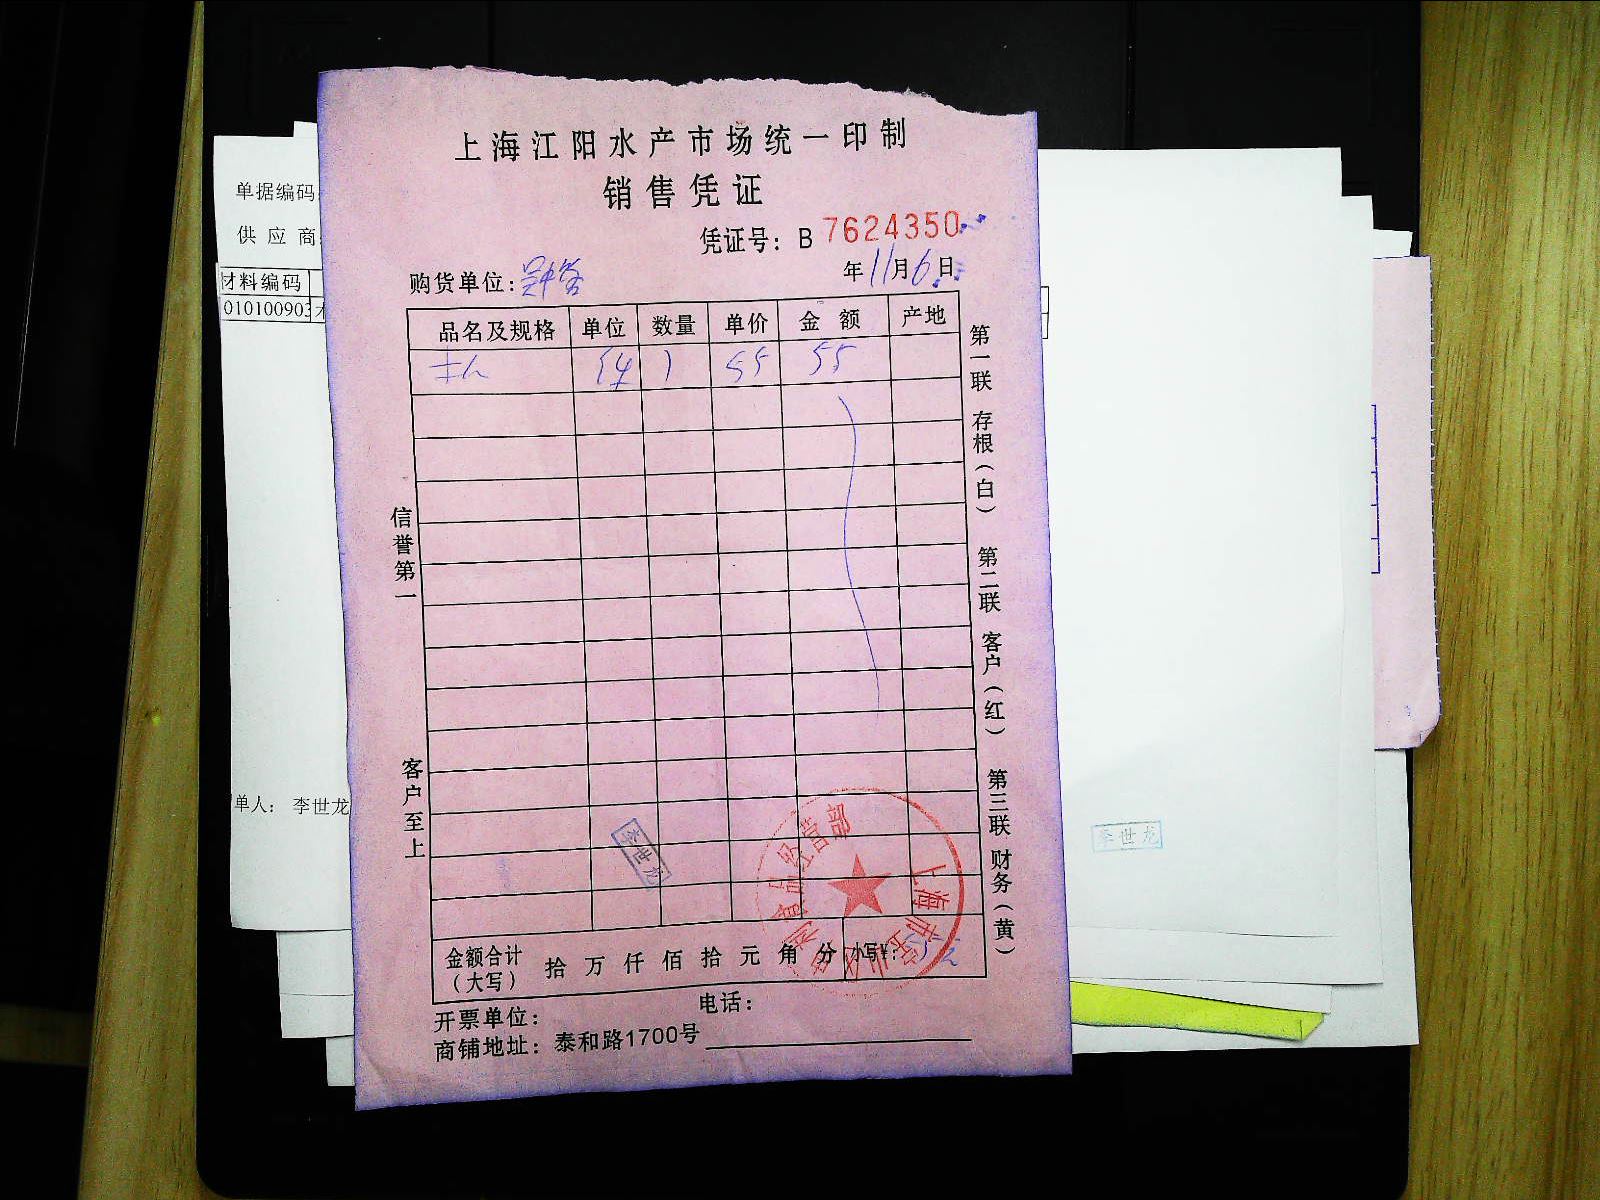 上海江阳水产市场统一印制
销售凭证
凭证号：B 7624350
购货单位：
年11月6日
品名及规格 单位 数量 单价 金额 产地
1 55 55
信誉第一
客户至上
第一联 存根（白） 第二联 客户（红） 第三联 财务（黄）
李世龙
金额合计（大写） 拾 万 仟 佰 拾 元 角 分 小写¥：
开票单位： 电话：
商铺地址：泰和路1700号
单据编码
供应商
材料编码
010100903
单人： 李世龙
李世龙